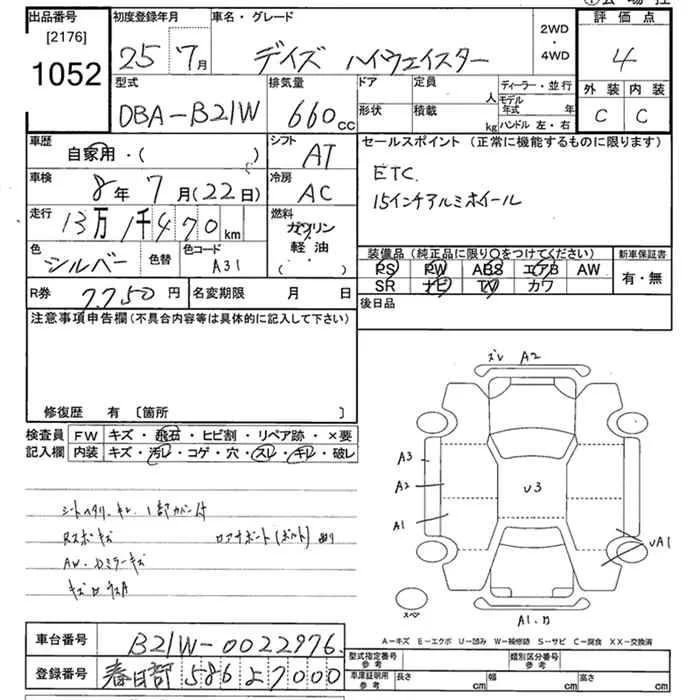 出品番号
[2176]
1052
初度登録年月
25 7月
車名・グレード
デイズ ハイウェイスター
2WD
・
4WD
評価点
4
外装 内装
C C
型式
DBA-B21W
排気量
660cc
ドア
形状
定員
人
積載
kg
ディーラー・並行
モデル
年式 年
ハンドル 左・右
車歴
自家用・( )
シフト
AT
車検
8年7月(22日)
冷房
AC
走行
13万1千470km
燃料
ガソリン
軽油
( )
色
シルバー
色替
色コード
A31
R券
7750円
名変期限 月 日
セールスポイント(正常に機能するものに限ります)
ETC.
15インチアルミホイール
装備品(純正品に限り○をつけてください)
PS PW ABS エアB AW
SR ナビ TV カワ
新車保証書
有・無
後日品
注意事項申告欄(不具合内容等は具体的に記入して下さい)
修復歴 有 [箇所 ]
検査員
記入欄
FW キズ・飛石・ヒビ割・リペア跡・×要
内装 キズ・汚レ・コゲ・穴・スレ・キレ・破レ
AW・Dミラーキズ
ズレ A2
A3
A2
A1
U3
UA1
スペア
A-キズ E-エクボ U-凹み W-補修跡 S-サビ C-腐食 XX-交換済
車台番号
B21W-0022976
登録番号
春日部 586 よ 7000
型式指定番号
参考
類別区分番号
参考
車庫証明用
参考
長さ cm
幅 cm
高さ cm